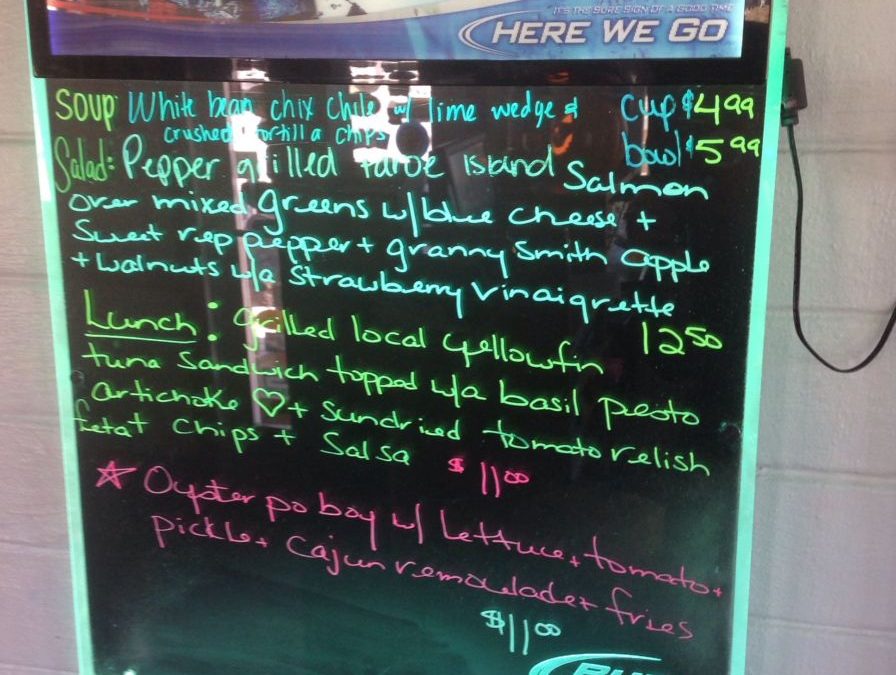 IT'S THE SURE SIGN OF A GOOD TIME
HERE WE GO
SOUP White bean chix chile w/ lime wedge & cup $4.99
crushed tortilla chips bowl $5.99
Salad: Pepper grilled faroe Island Salmon
over mixed greens w/blue cheese +
Sweet rep pepper + granny Smith apple
+ walnuts w/a Strawberry Vinaigrette
12 50
Lunch: grilled local yellowfin
tuna Sandwich topped w/a basil pesto
artichoke ♡ + sundried tomato relish
feta + Chips + Salsa $11 00
☆ Oyster po boy w/ Lettuce + tomato +
pickle + Cajun remoulade + fries
$11 00